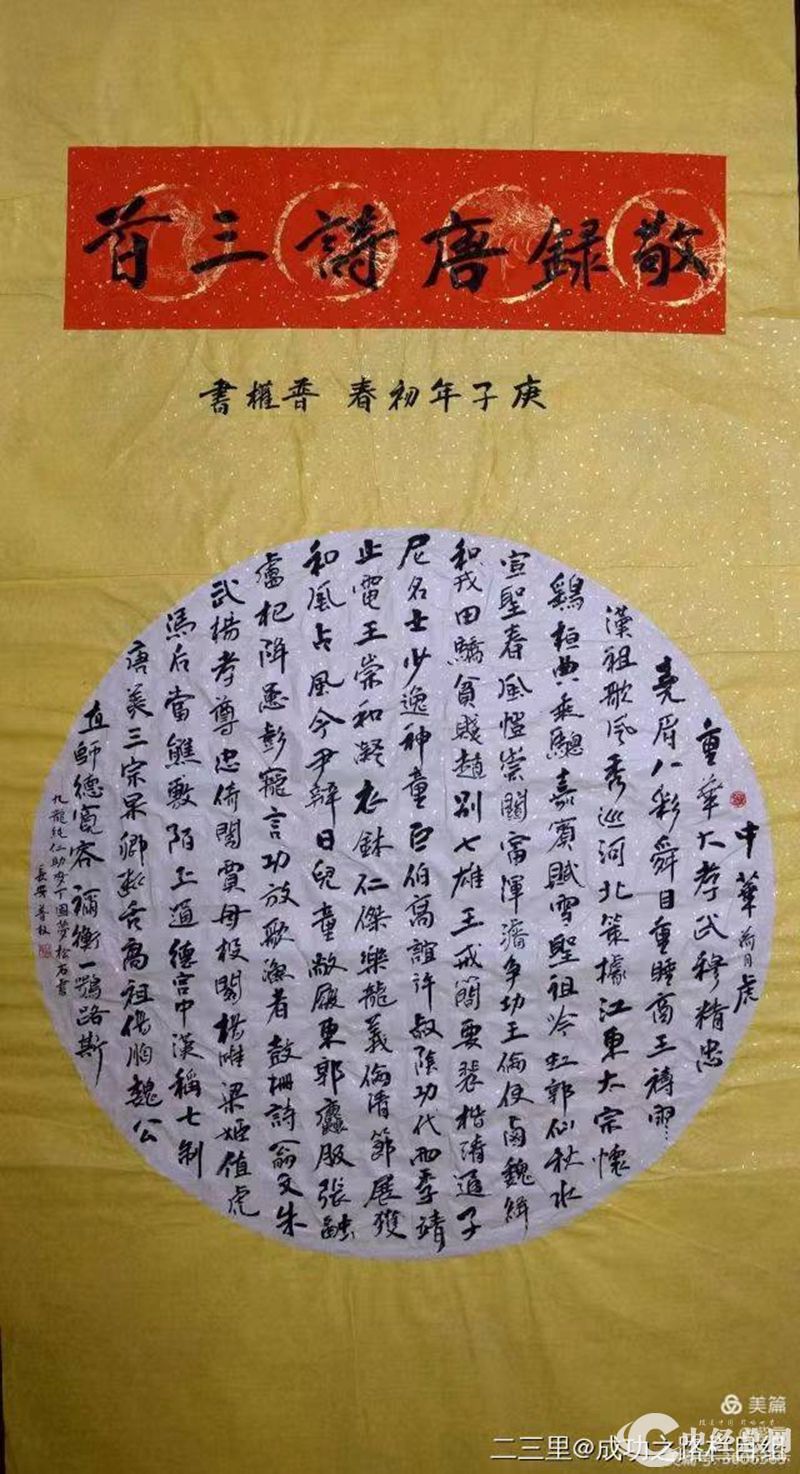 敬録唐詩三首
庚子年初春 普權書
中華
重華大孝武穆精忠
堯眉八彩舜目重瞳商王禱雨
漢祖歌風秀巡河北策據江東太宗懷
鷂桓典乘驄嘉賓賦雪聖祖吟虹郭仙秋水
宣聖春風愷崇鬪富渾濬争功王倫使虜魏絳
和戎田驕貧賤趙別七雄王戎簡要裴楷清通子
尼名士少逸神童巨伯高誼許叔陰功代雨李靖
止雹王崇和凝衣鉢仁傑樂龍義倫清節展獲
和風占風令尹辯日兒童敝履東郭麤服張融
盧杞除患彭寵言功放歌漁者鼓枻詩翁文朱
武楊孝尊忠倚閭賈母投閣楊雄梁姬值虎
馮后當熊敷陌上通德宮中漢稱七制
唐羨三宗杲卿斷舌高祖傷胸魏公
直師德寬容禰衡一鶚路斯
九龍純仁助麥丁固夢松石書
長安普權
美篇
二三里@成功之路栏目组